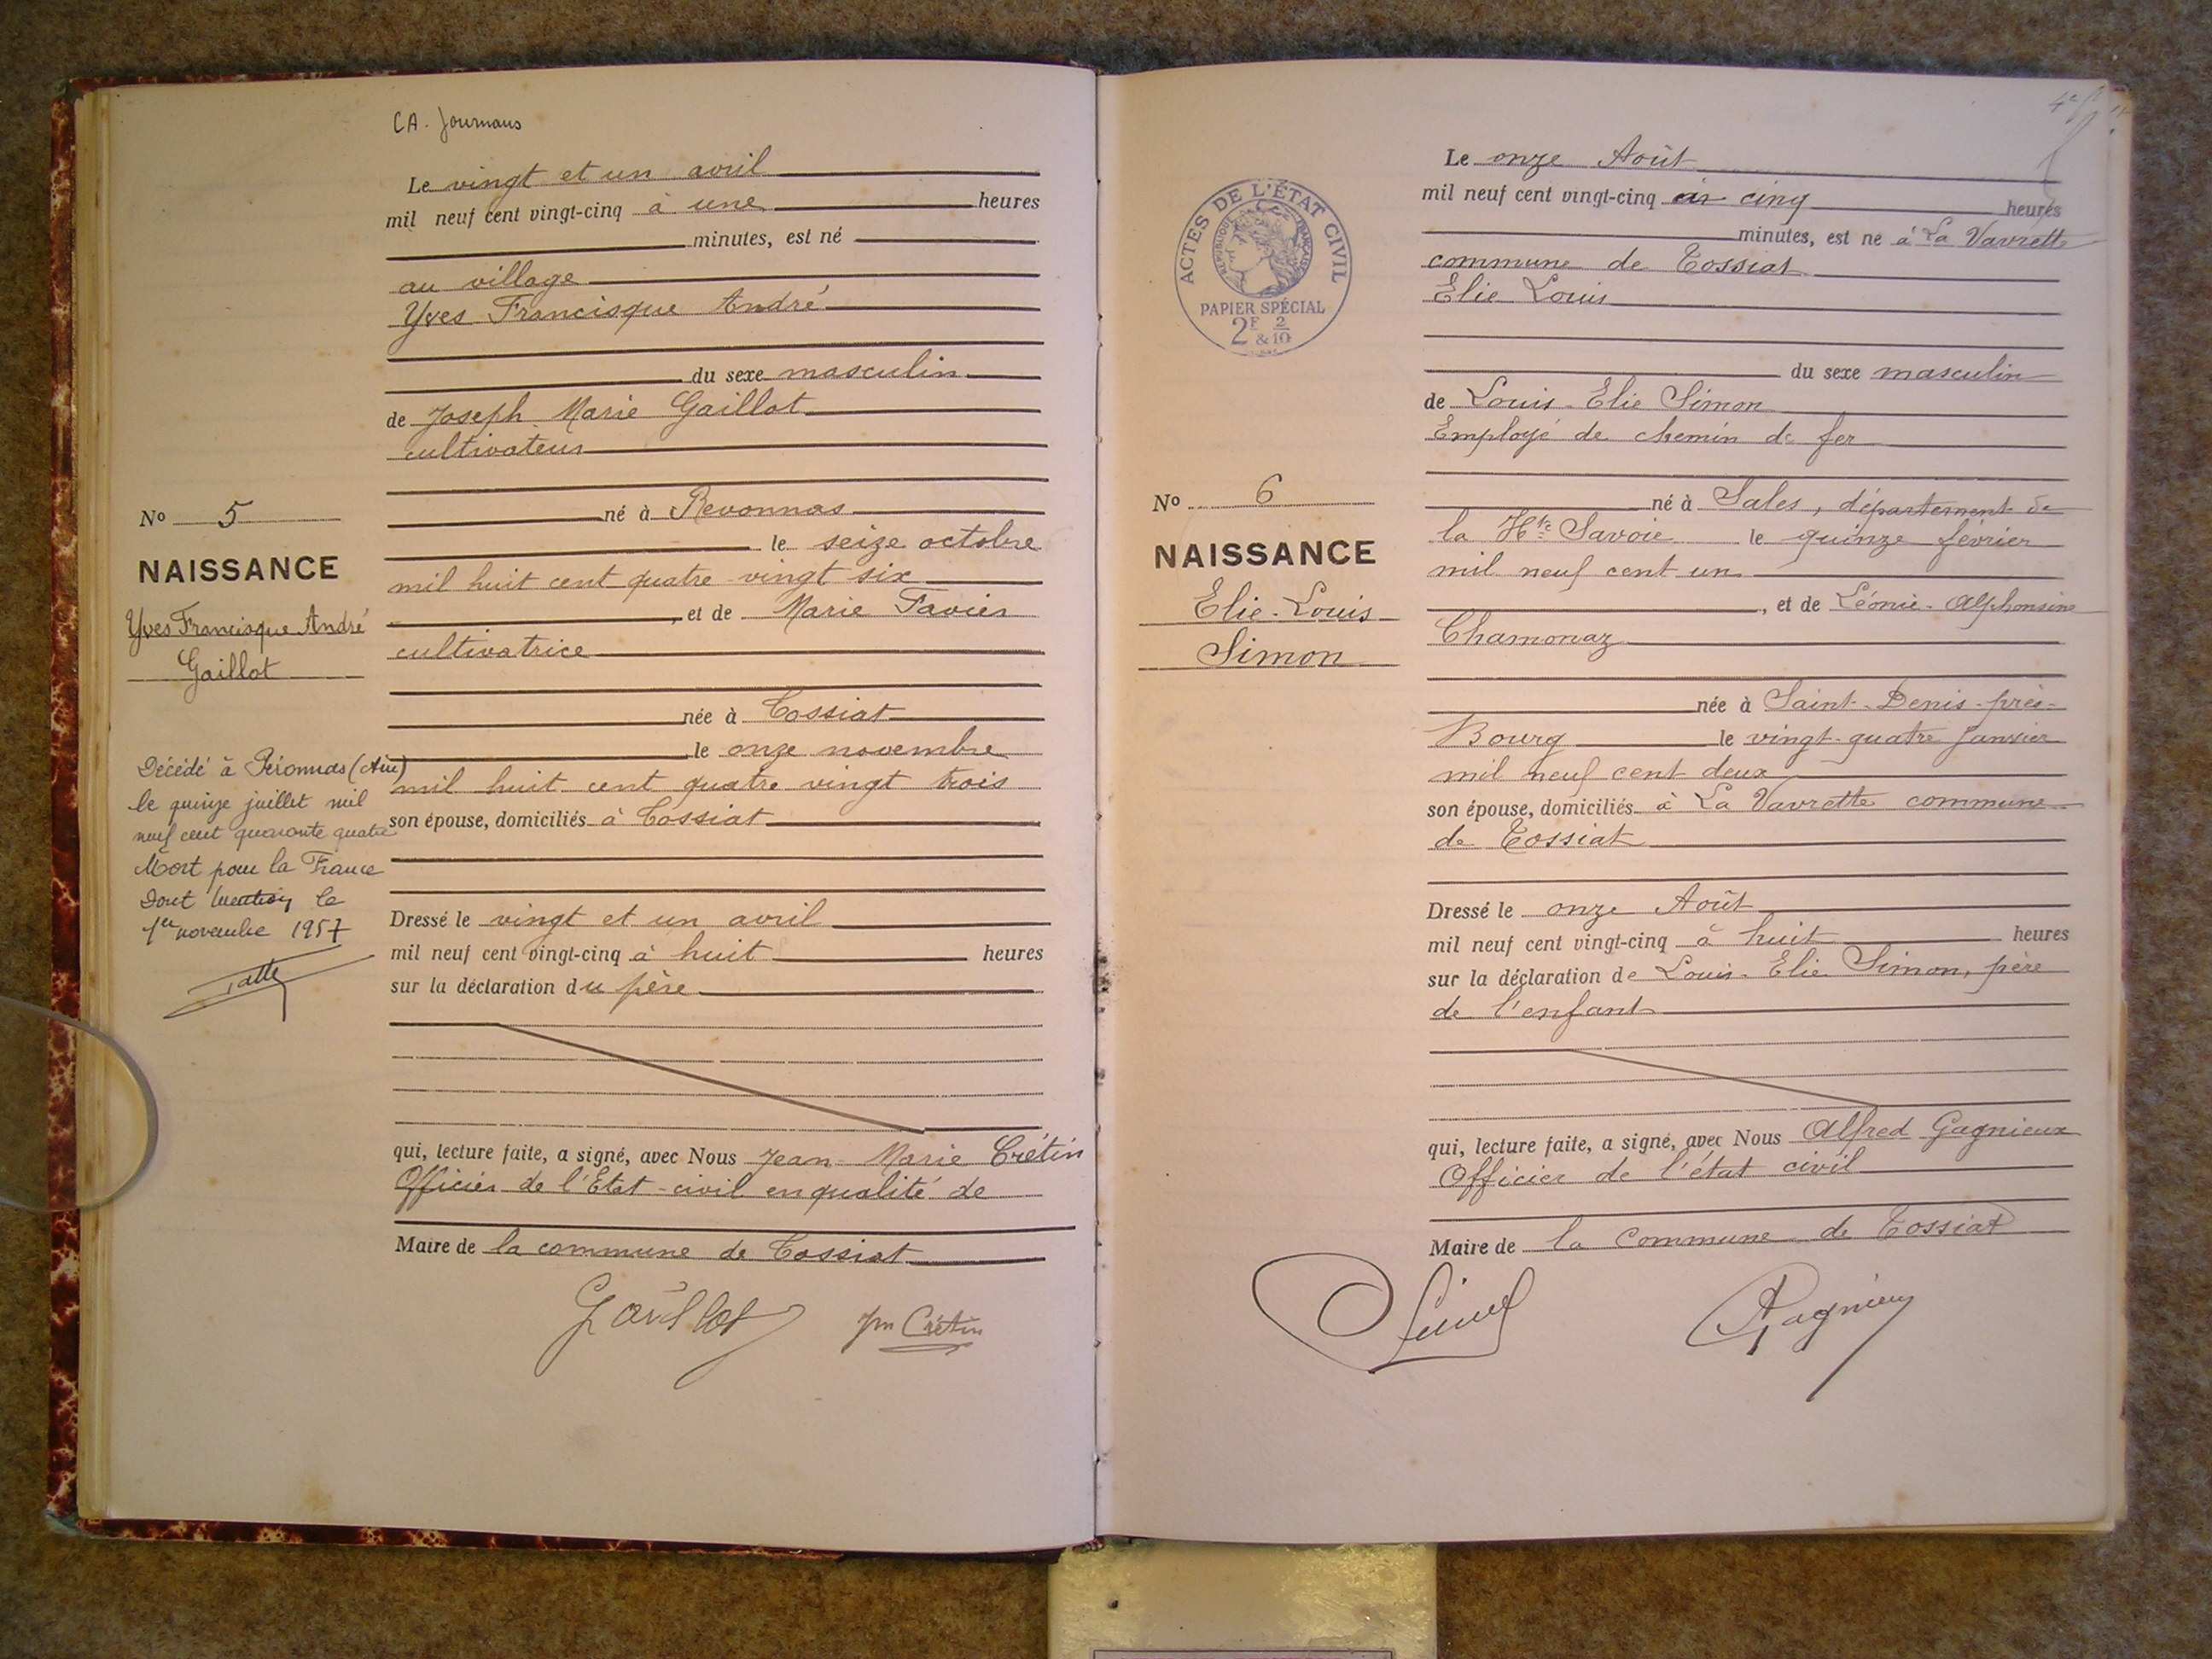 CA. Journans
Le vingt et un avril
mil neuf cent vingt-cinq à une heures
minutes, est né
au village
Yves Francisque André
du sexe masculin
de Joseph Marie Gaillot
cultivateur
né à Revonnas
le seize octobre
mil huit cent quatre-vingt six
, et de Marie Favier
cultivatrice
née à Tossiat
le onze novembre
mil huit cent quatre vingt trois
son épouse, domiciliés à Tossiat
Dressé le vingt et un avril
mil neuf cent vingt-cinq à huit heures
sur la déclaration du père
qui, lecture faite, a signé, avec Nous Jean-Marie Crétin
Officier de l'Etat-civil en qualité de
Maire de la commune de Tossiat
Gaillot Jm Crétin
No 5
NAISSANCE
Yves Francisque André
Gaillot
Décédé à Péronnas (Ain)
le quinze juillet mil
neuf cent quarante quatre
Mort pour la France
Dont Mention le
1er novembre 1957
ACTES DE L'ÉTAT CIVIL
RÉPUBLIQUE FRANÇAISE
PAPIER SPÉCIAL
2F & 2/10
No 6
NAISSANCE
Elie-Louis
Simon
Le onze Août
mil neuf cent vingt-cinq à cinq heures
minutes, est né à La Vavrette
commune de Tossiat
Elie Louis
du sexe masculin
de Louis-Elie Simon
Employé de chemin de fer
né à Sales, département de
la Hte Savoie le quinze février
mil neuf cent un
, et de Léonie-Alphonsine
Chamonaz
née à Saint-Denis-près-
Bourg le vingt-quatre Janvier
mil neuf cent deux
son épouse, domiciliés à La Vavrette commune
de Tossiat
Dressé le onze Août
mil neuf cent vingt-cinq à huit heures
sur la déclaration de Louis-Elie Simon, père
de l'enfant
qui, lecture faite, a signé, avec Nous Alfred Gagnieux
Officier de l'état civil
Maire de la Commune de Tossiat
Simon AGagnieux